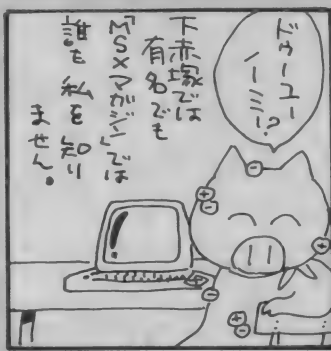 ドゥーユー
ノーミー?
下赤塚では
有名でも
「MSXマガジン」では
誰も私を知り
ません。